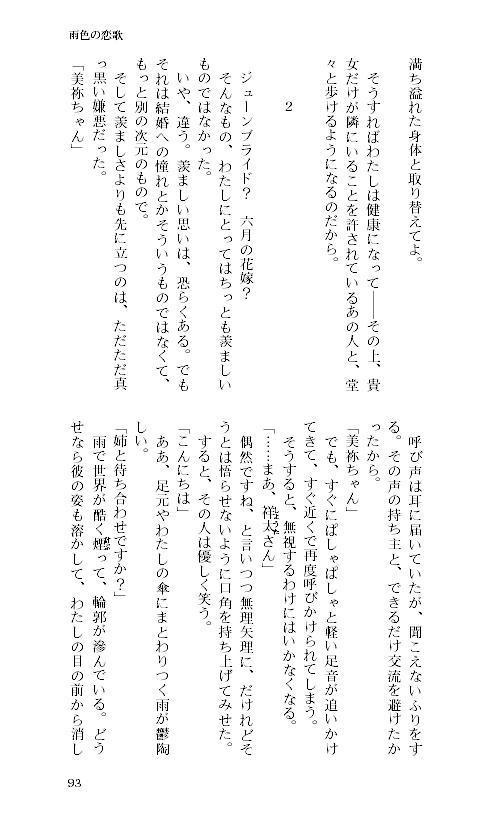 雨色の恋歌
満ち溢れた身体と取り替えてよ。
そうすればわたしは健康になって――その上、貴
女だけが隣にいることを許されているあの人と、堂
々と歩けるようになるのだから。
2
ジューンブライド？　六月の花嫁？
そんなもの、わたしにとってはちっとも羨ましい
ものではなかった。
いや、違う。羨ましい思いは、恐らくある。でも
それは結婚への憧れとかそういうものではなくて、
もっと別の次元のもので。
そして羨ましさよりも先に立つのは、ただただ真
っ黒い嫌悪だった。
「美祢ちゃん」
呼び声は耳に届いていたが、聞こえないふりをす
る。その声の持ち主と、できるだけ交流を避けたか
ったから。
「美祢ちゃん」
でも、すぐにぱしゃぱしゃと軽い足音が追いかけ
てきて、すぐ近くで再度呼びかけられてしまう。
そうすると、無視するわけにはいかなくなる。
「……まあ、祥太さん」
偶然ですね、と言いつつ無理矢理に、だけれどそ
うとは悟らせないように口角を持ち上げてみせた。
すると、その人は優しく笑う。
「こんにちは」
ああ、足元やわたしの傘にまとわりつく雨が鬱陶
しい。
「姉と待ち合わせですか？」
雨で世界が酷く煙って、輪郭が滲んでいる。どう
せなら彼の姿も溶かして、わたしの目の前から消し
93